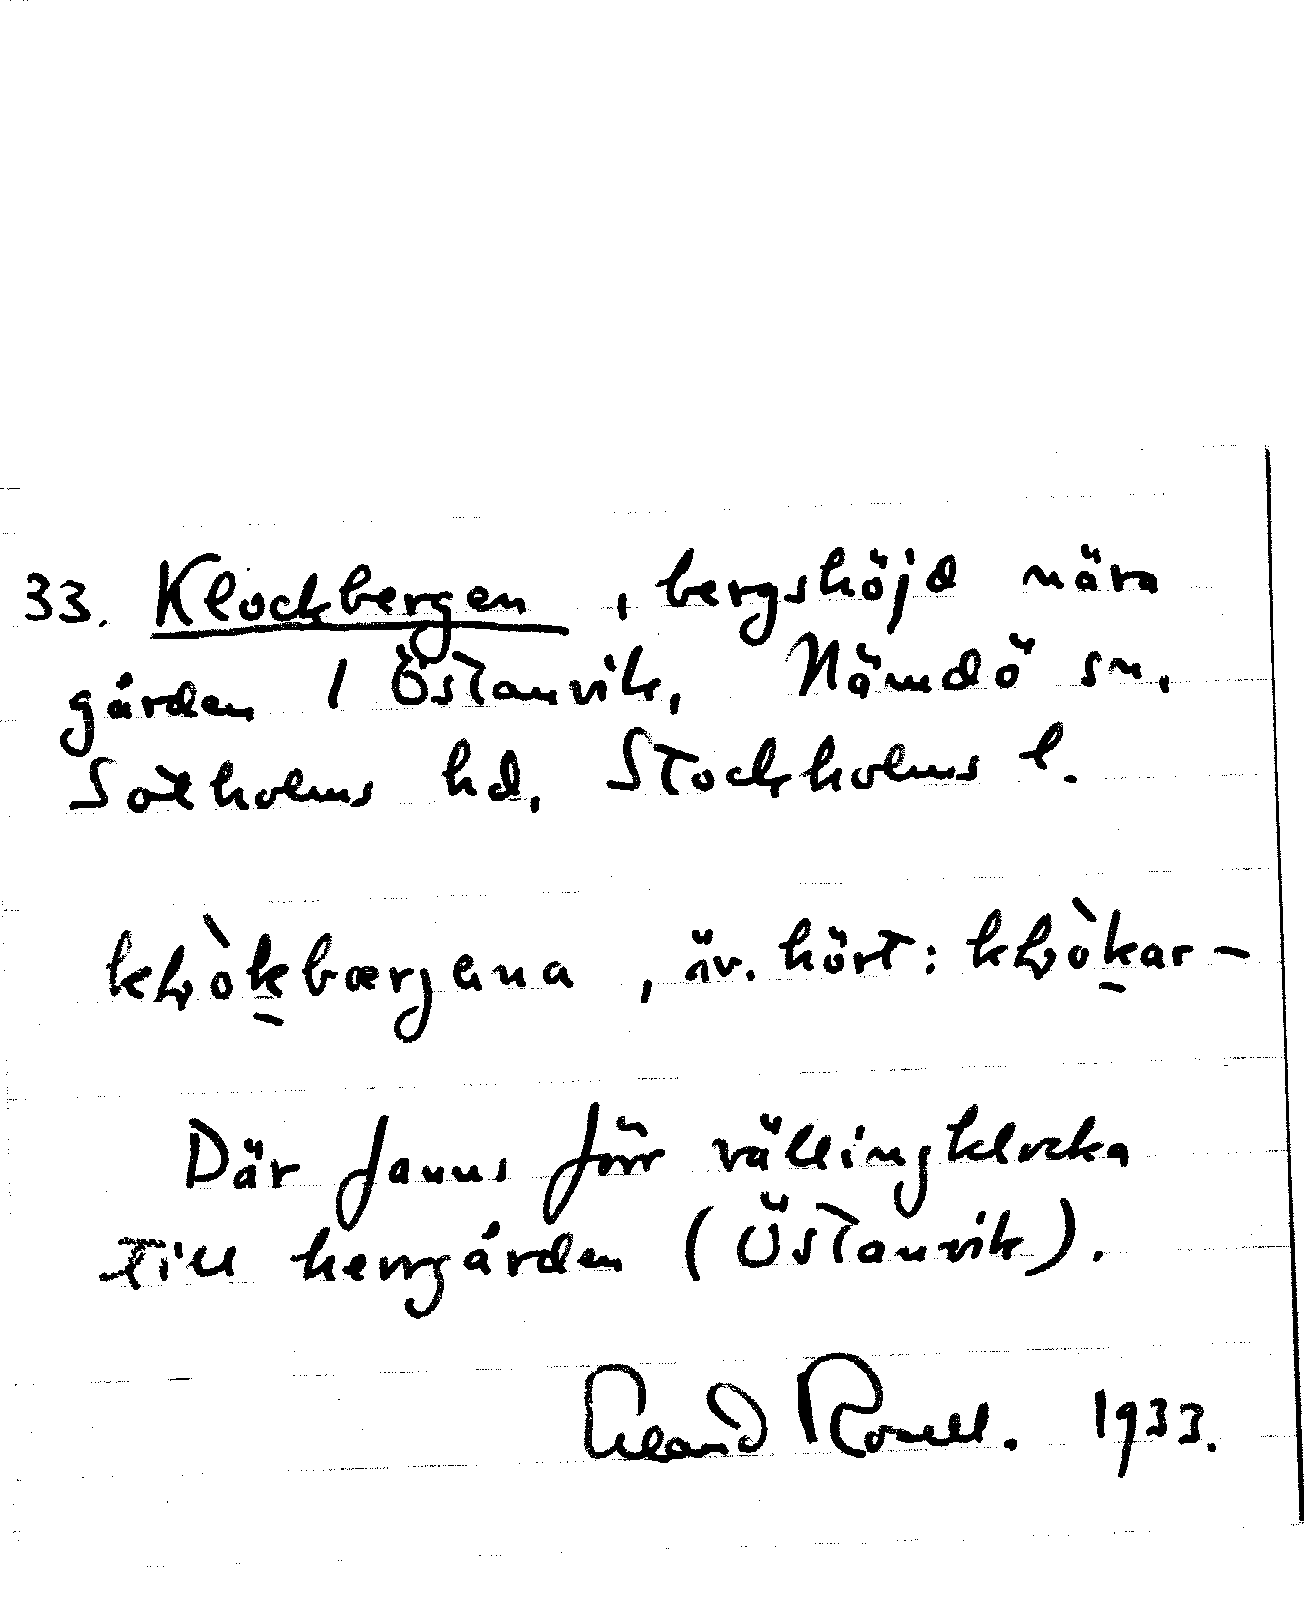 33. Klockbergen, bergshöjd nära
gården / Östanvik, Nämdö sn,
Sotholms hd, Stockholms l.
klòkbærjana, äv. hört: klòkar-
Där fanns förr vällingklocka
till herrgården (Östanvik).
1933.